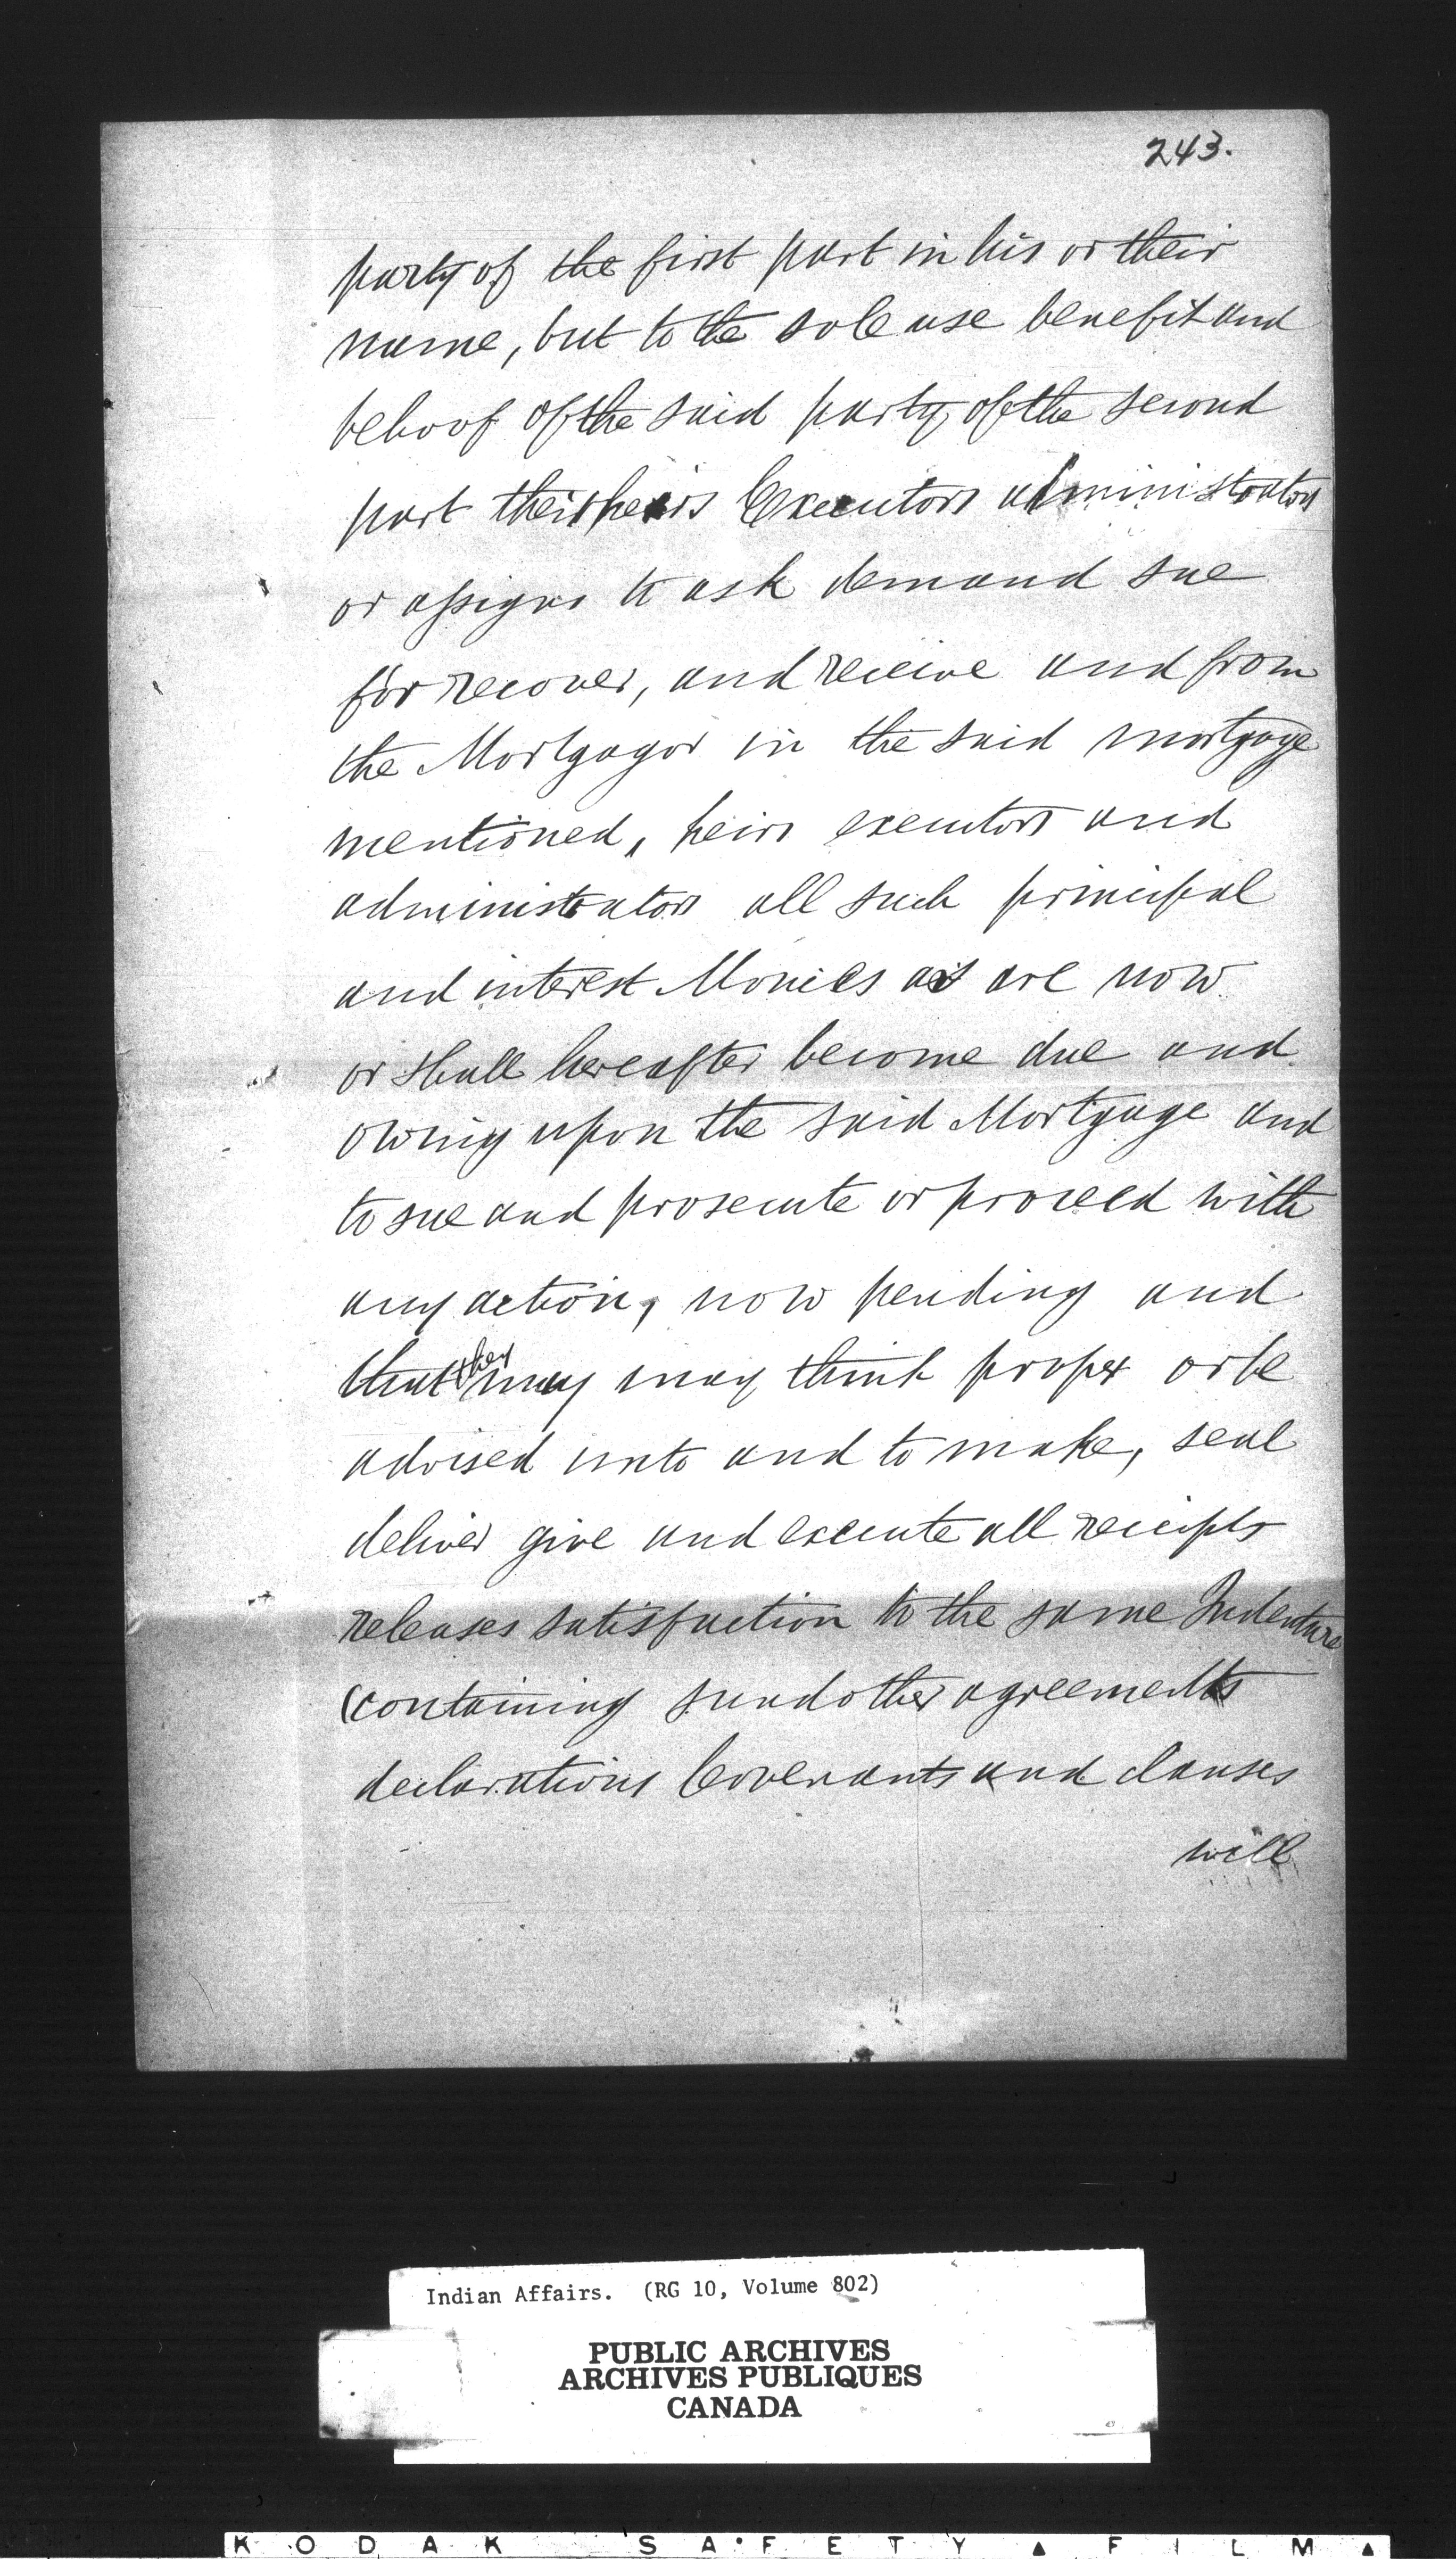 243.
party of the first part in his or their
name, but to the sole use benefit and
behoof of the said party of the second
part their heirs Executors administrators
or assigns to ask demand sue
for recover, and receive and from
the Mortgagor in the said mortgage
mentioned, heirs executors and
administrators all such principal
and interest Monies as are now
or shall hereafter become due and
owing upon the said Mortgage and
to sue and prosecute or proceed with
any action, now pending and
that they may may think proper or be
advised unto and to make, seal
deliver give and execute all receipts
releases satisfaction to the same Indenture
(containing other agreements
declarations Covenants and clauses
will
Indian Affairs. (RG 10, Volume 802)
PUBLIC ARCHIVES
ARCHIVES PUBLIQUES
CANADA
KODAK SAFETY FILM